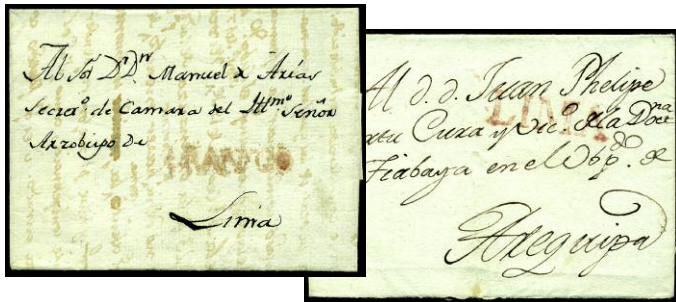 Al Sor Dr Dn Manuel de Arías
Secreto. de Camara del Illmo. Señor
Arzobispo de
FRANCO
Lima
Al d. d. Juan Phelipe
LIMA
Cura y Vico. de la Docna
Tiabaya en el Obpdo. de
Arequipa